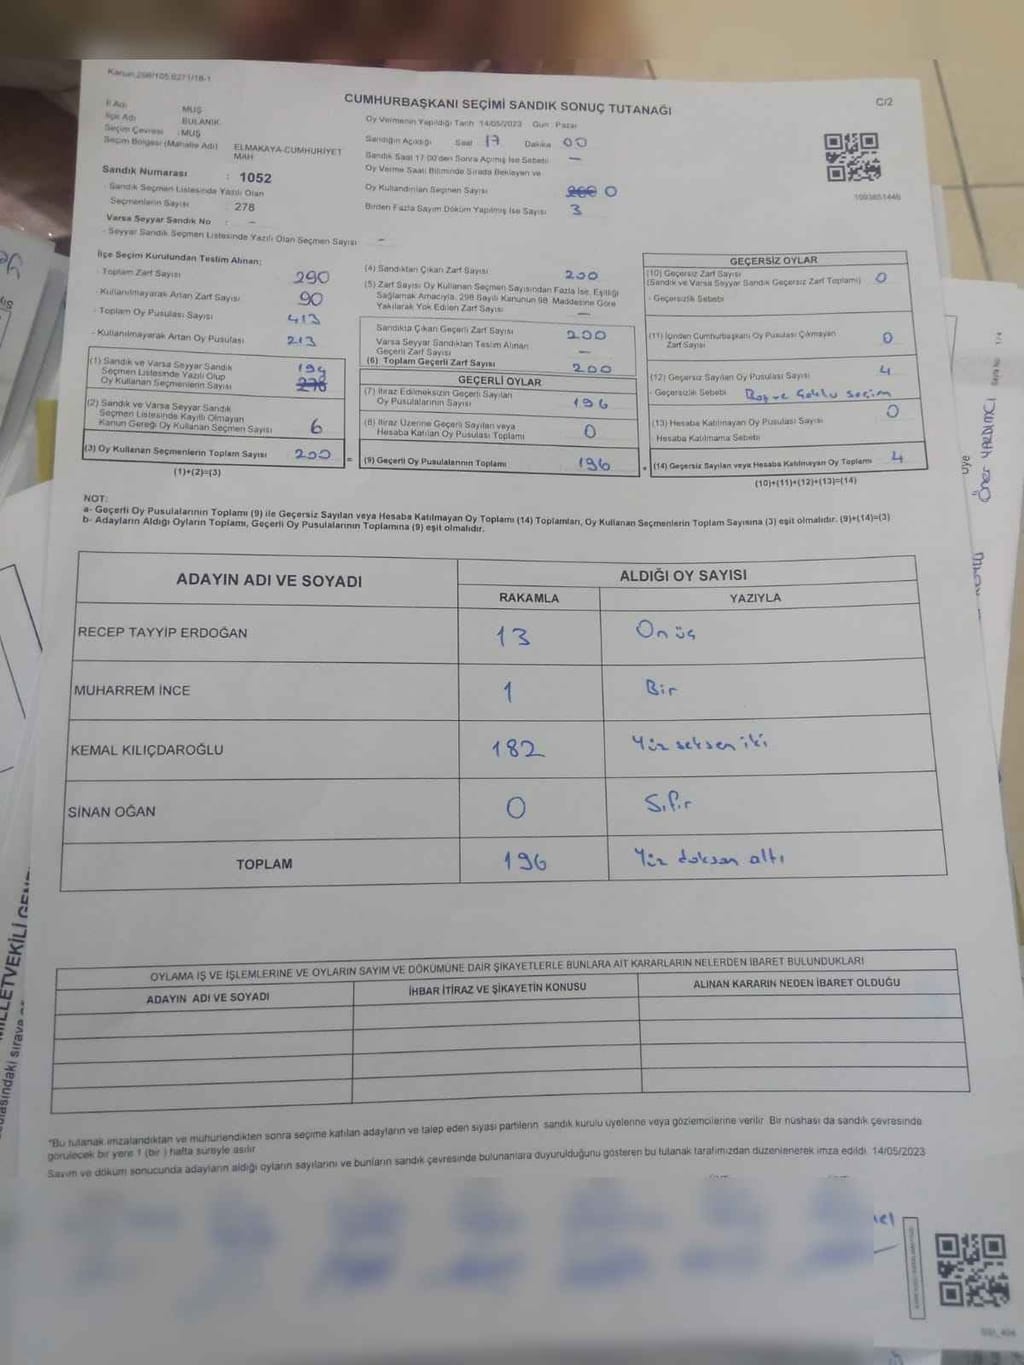 Kanun 298/105,6271/18-1
C/2
CUMHURBAŞKANI SEÇİMİ SANDIK SONUÇ TUTANAĞI
İl Adı MUŞ
İlçe Adı BULANIK
Seçim Çevresi : MUŞ
Seçim Bölgesi (Mahalle Adı) ELMAKAYA-CUMHURİYET MAH
Sandık Numarası : 1052
- Sandık Seçmen Listesinde Yazılı Olan
Seçmenlerin Sayısı : 278
Varsa Seyyar Sandık No : -
- Seyyar Sandık Seçmen Listesinde Yazılı Olan Seçmen Sayısı -
Oy Vermenin Yapıldığı Tarih 14/05/2023 Gün : Pazar
Sandığın Açıldığı Saat 17 Dakika 00
Sandık Saat 17.00'den Sonra Açılmış İse Sebebi -
Oy Verme Saati Bitiminde Sırada Bekleyen ve
Oy Kullandırılan Seçmen Sayısı 200 0
Birden Fazla Sayım Döküm Yapılmış İse Sayısı 3
1093651446
İlçe Seçim Kurulundan Teslim Alınan;
- Toplam Zarf Sayısı 290
- Kullanılmayarak Artan Zarf Sayısı 90
- Toplam Oy Pusulası Sayısı 413
- Kullanılmayarak Artan Oy Pusulası 213
(1) Sandık ve Varsa Seyyar Sandık
Seçmen Listesinde Yazılı Olup
Oy Kullanan Seçmenlerin Sayısı 194 278
(2) Sandık ve Varsa Seyyar Sandık
Seçmen Listesinde Kayıtlı Olmayan
Kanun Gereği Oy Kullanan Seçmen Sayısı 6
(3) Oy Kullanan Seçmenlerin Toplam Sayısı 200
(1)+(2)=(3)
(4) Sandıktan Çıkan Zarf Sayısı 200
(5) Zarf Sayısı Oy Kullanan Seçmen Sayısından Fazla İse, Eşitliği
Sağlamak Amacıyla, 298 Sayılı Kanunun 98. Maddesine Göre
Yakılarak Yok Edilen Zarf Sayısı -
Sandıkta Çıkan Geçerli Zarf Sayısı 200
Varsa Seyyar Sandıktan Teslim Alınan
Geçerli Zarf Sayısı -
(6) Toplam Geçerli Zarf Sayısı 200
GEÇERLİ OYLAR
(7) İtiraz Edilmeksizin Geçerli Sayılan
Oy Pusulalarının Sayısı 196
(8) İtiraz Üzerine Geçerli Sayılan veya
Hesaba Katılan Oy Pusulası Toplamı 0
= (9) Geçerli Oy Pusulalarının Toplamı 196
GEÇERSİZ OYLAR
(10) Geçersiz Zarf Sayısı 0
(Sandık ve Varsa Seyyar Sandık Geçersiz Zarf Toplamı)
- Geçersizlik Sebebi
(11) İçinden Cumhurbaşkanı Oy Pusulası Çıkmayan
Zarf Sayısı 0
(12) Geçersiz Sayılan Oy Pusulası Sayısı 4
- Geçersizlik Sebebi
(13) Hesaba Katılmayan Oy Pusulası Sayısı 0
Hesaba Katılmama Sebebi
+ (14) Geçersiz Sayılan veya Hesaba Katılmayan Oy Toplamı 4
(10)+(11)+(12)+(13)=(14)
NOT:
a- Geçerli Oy Pusulalarının Toplamı (9) ile Geçersiz Sayılan veya Hesaba Katılmayan Oy Toplamı (14) Toplamları, Oy Kullanan Seçmenlerin Toplam Sayısına (3) eşit olmalıdır. (9)+(14)=(3)
b- Adayların Aldığı Oyların Toplamı, Geçerli Oy Pusulalarının Toplamına (9) eşit olmalıdır.
ADAYIN ADI VE SOYADI
ALDIĞI OY SAYISI
RAKAMLA YAZIYLA
RECEP TAYYİP ERDOĞAN 13 On üç
MUHARREM İNCE 1 Bir
KEMAL KILIÇDAROĞLU 182 Yüz seksen iki
SİNAN OĞAN 0 Sıfır
TOPLAM 196 Yüz doksan altı
OYLAMA İŞ VE İŞLEMLERİNE VE OYLARIN SAYIM VE DÖKÜMÜNE DAİR ŞİKAYETLERLE BUNLARA AİT KARARLARIN NELERDEN İBARET BULUNDUKLARI
ADAYIN ADI VE SOYADI İHBAR İTİRAZ VE ŞİKAYETİN KONUSU ALINAN KARARIN NEDEN İBARET OLDUĞU
*Bu tutanak imzalandıktan ve mühürlendikten sonra seçime katılan adayların ve talep eden siyasi partilerin sandık kurulu üyelerine veya gözlemcilerine verilir. Bir nüshası da sandık çevresinde
görülecek bir yere 1 (bir) hafta süreyle asılır.
Sayım ve döküm sonucunda adayların aldığı oyların sayılarını ve bunların sandık çevresinde bulunanlara duyurulduğunu gösteren bu tutanak tarafımızdan düzenlenerek imza edildi. 14/05/2023
MİLLETVEKİLİ GENE
Üye
Öner YARDIMCI
Sayfa No: 1/4